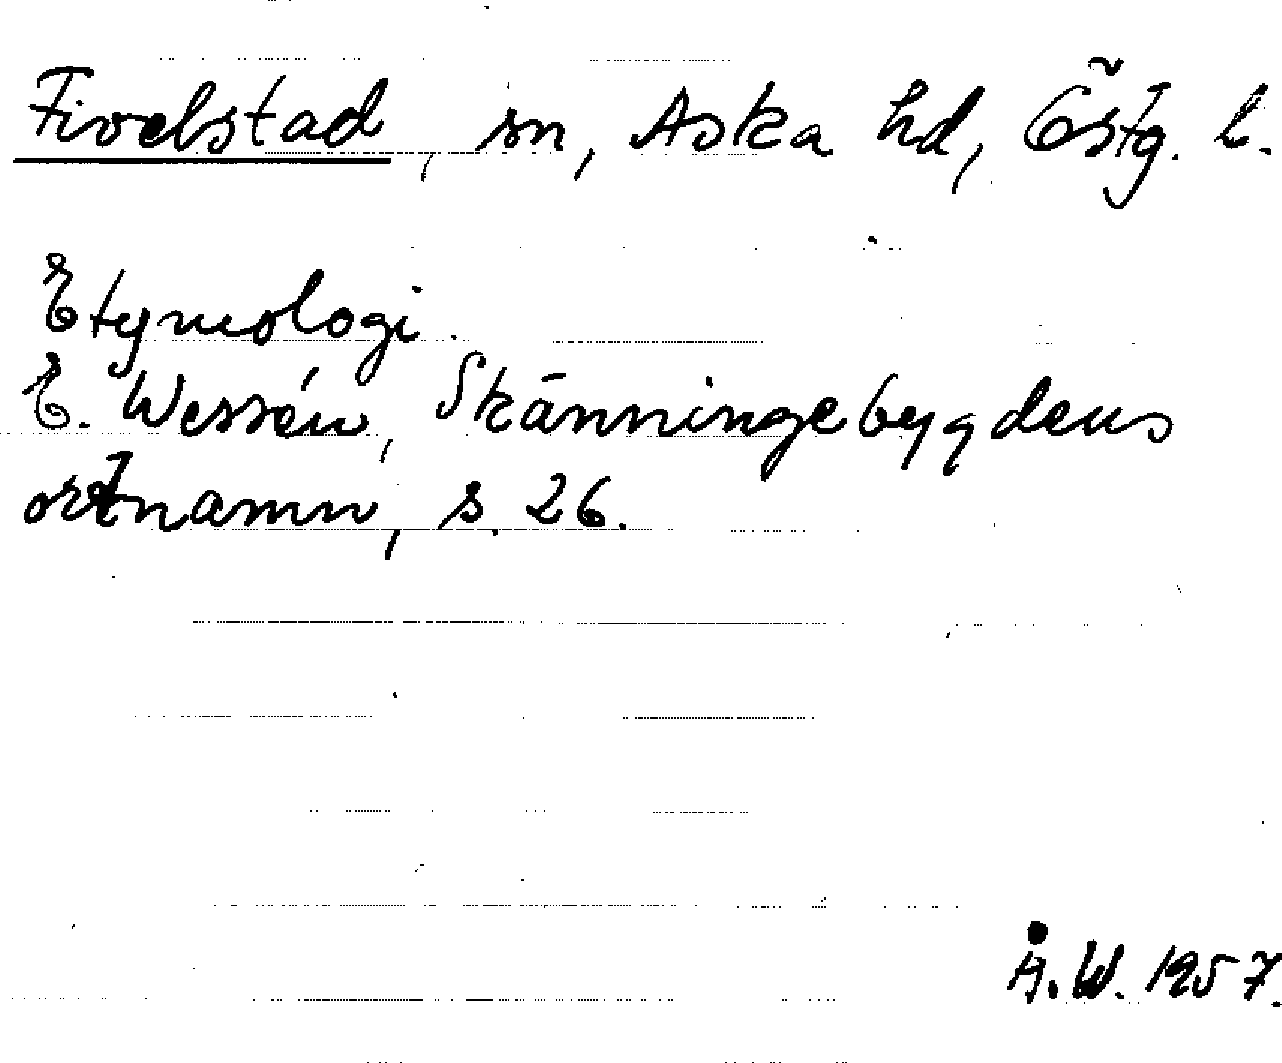 Fivelstad, sn, Aska hd, Östg. l.
Etymologi.
E. Wessén, Skänningebygdens
ortnamn, s. 26.
Å. W. 1957.